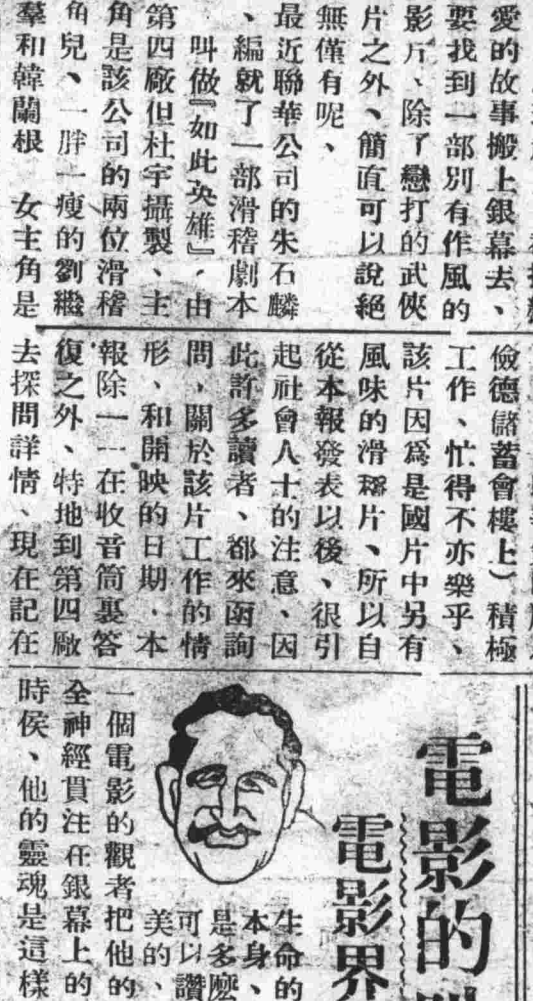 愛的故事搬上銀幕去、
要找到一部別有作風的
影片、除了戀打的武俠
片之外、簡直可以說絕
無僅有呢、
最近聯華公司的朱石麟
、編就了一部滑稽劇本
叫做『如此英雄』，由
第四廠但杜宇攝製、主
角是該公司的兩位滑稽
角兒、一胖一瘦的劉繼
羣和韓蘭根 女主角是
儉德儲蓄會樓上）積極
工作、忙得不亦樂乎、
該片因爲是國片中另有
風味的滑稽片、所以自
從本報發表以後、很引
起社會人士的注意、因
此許多讀者、都來函詢
問、關於該片工作的情
形、和開映的日期．本
報除一一在收音筒裏答
復之外、特地到第四廠
去探問詳情、現在記在
電影的
電影界
生命的
本身、
是多麼
可以讚
美的、
一個電影的觀者把他的
全神經貫注在銀幕上的
時侯、他的靈魂是這樣